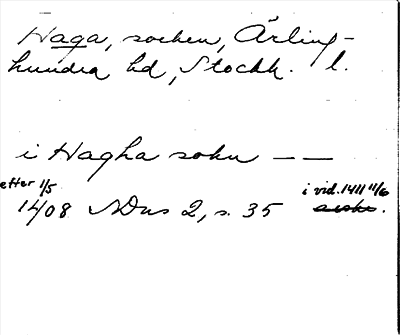 Haga, socken, Ärling-
hundra hd, Stockh. l.
i Hagha sokn — —
efter 1/5
1408 NDns 2, s. 35
i vid. 1411 11/6